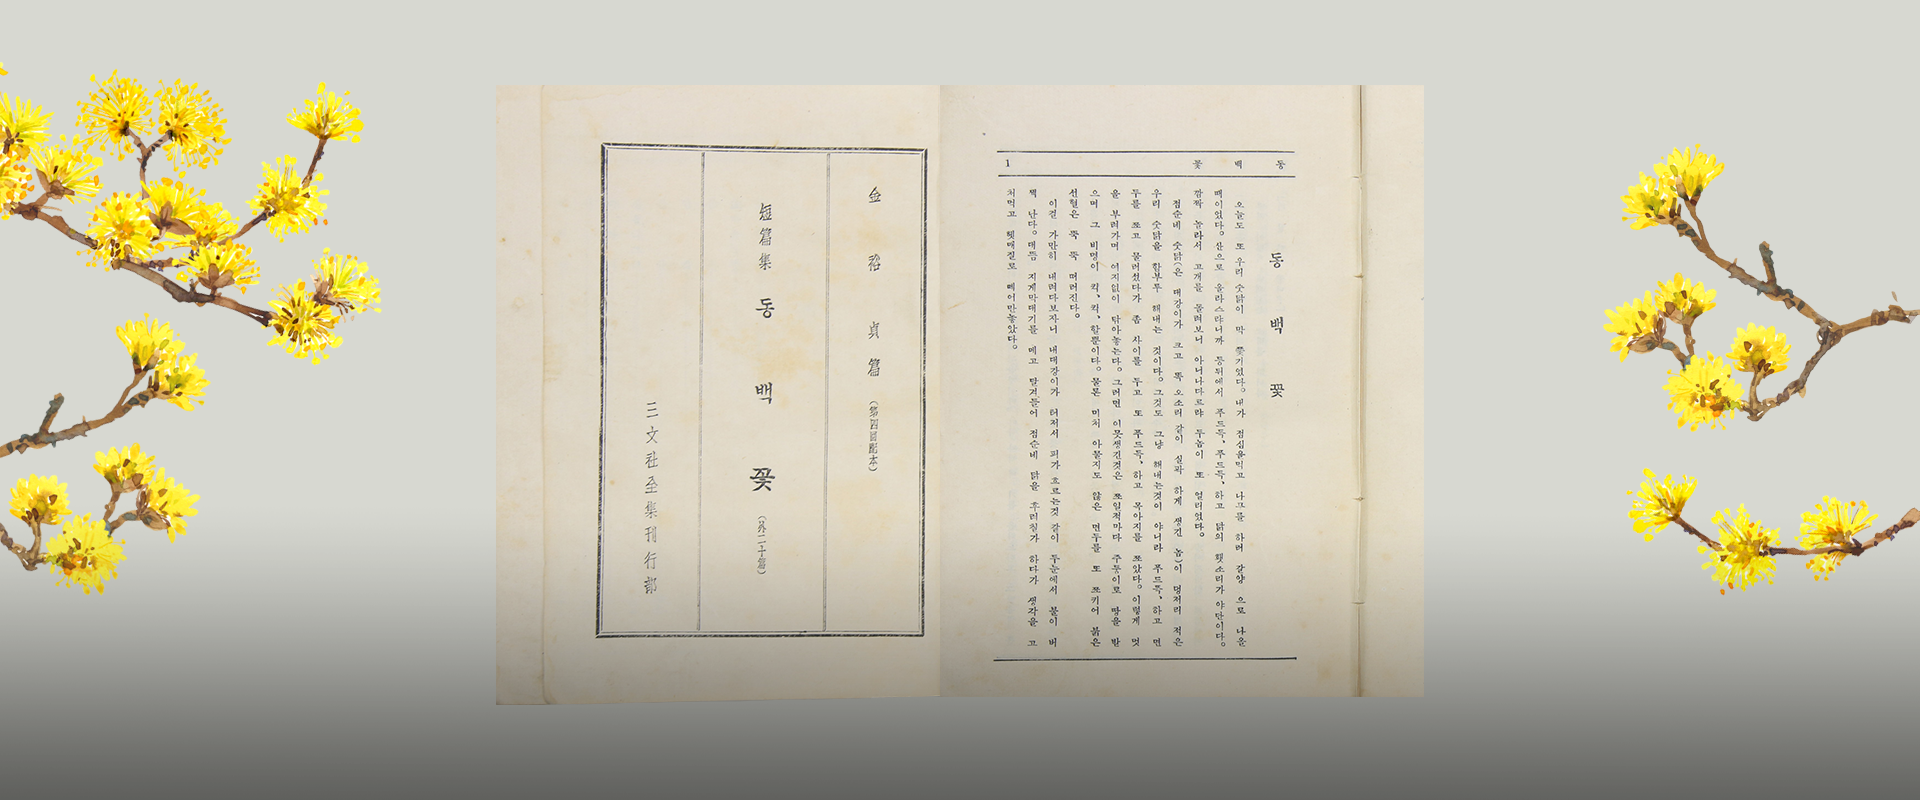 金裕貞篇 (第四回配本)
短篇集 동백꽃 (外二十篇)
三文社全集刊行部
동백꽃 1
동백꽃
오늘도 또 우리 숫닭이 막 쫓기었다. 내가 점심을먹고 나무를 하러 갈양 으로 나올
때이었다. 산으로 올라스랴니까 등뒤에서 푸드득, 푸드득, 하고 닭의 횃소리가 야단이다.
깜짝 놀라서 고개를 돌려보니 아니나다르랴 두놈이 또 얼리었다.
점순네 숫닭(은 대강이가 크고 똑 오소리 같이 실팍 하게 생긴 놈)이 덩저리 적은
우리 숫닭을 함부루 해내는 것이다. 그것도 그냥 해내는것이 아니라 푸드득, 하고 면
두를 쪼고 물러섰다가 좀 사이를 두고 또 푸드득, 하고 목아지를 쪼았다. 이렇게 멋
을 부려가며 여지없이 닦아놓는다. 그러면 이못생긴것은 쪼일적마다 주둥이로 땅을 받
으며 그 비명이 킥, 킥, 할뿐이다. 물론 미처 아물지도 않은 면두를 또 쪼키어 붉은
선혈은 뚝 뚝 떠러진다.
이걸 가만히 내려다보자니 내대강이가 터저서 피가 흐르는것 같이 두눈에서 불이 버
쩍 난다. 대뜸 지게막대기를 메고 달겨들어 점순네 닭을 후려칠가 하다가 생각을 고
처먹고 헷매질로 떼어만놓았다.